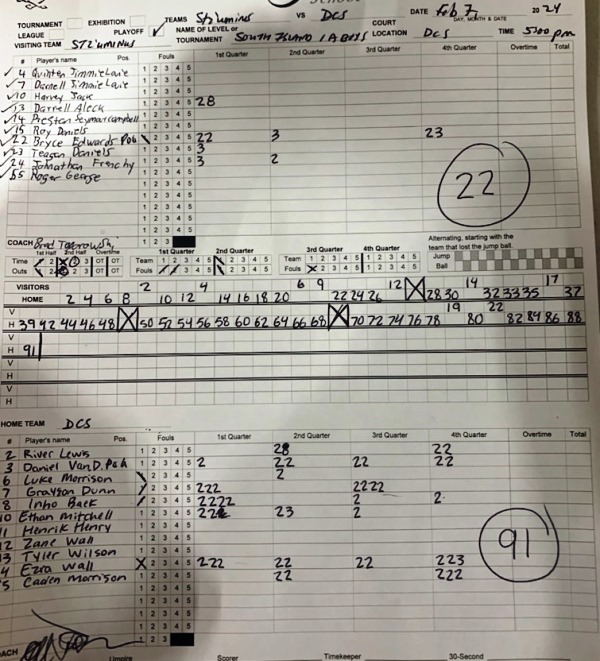 TOURNAMENT EXHIBITION TEAMS Stz'uminus VS DCS DATE Feb 7 2024
DAY, MONTH & DATE
LEAGUE PLAYOFF NAME OF LEVEL or TOURNAMENT SOUTH ISLAND 1A BOYS COURT LOCATION DCS TIME 5:00 pm
VISITING TEAM STZ'UMINUS
# Player's name Pos. Fouls 1st Quarter 2nd Quarter 3rd Quarter 4th Quarter Overtime Total
4 Quinten Jimmie Louie 1 2 3 4 5
7 Darnell Jimmie Louie 1 2 3 4 5
10 Harvey Jack 1 2 3 4 5
13 Darrell Aleck 1 2 3 4 5 28
14 Preston Seymour campbell 1 2 3 4 5
15 Roy Daniels 1 2 3 4 5
22 Bryce Edwards 1 2 3 4 5 22 3 23
23 Teagan Daniels 1 2 3 4 5 3
24 Johnathan Frenchy 1 2 3 4 5 3 2
55 Roger George 1 2 3 4 5
1 2 3 4 5
1 2 3 4 5
22
COACH Brad 1 2 3
Alternating, starting with the team that lost the jump ball.
1st Half 2nd Half Overtime 1st Quarter 2nd Quarter 3rd Quarter 4th Quarter
Time Outs Team Fouls Team Fouls Jump Ball
VISITORS 2 4 6 9 12 14 17
HOME 2 4 6 8 10 12 14 16 18 20 22 24 26 28 30 32 33 35 37
V 19 22
H 39 42 44 46 48 50 52 54 56 58 60 62 64 66 68 70 72 74 76 78 80 82 84 86 88
V
H 91
V
H
V
H
HOME TEAM DCS
# Player's name Pos. Fouls 1st Quarter 2nd Quarter 3rd Quarter 4th Quarter Overtime Total
2 River Lewis 1 2 3 4 5 28 22
3 Daniel Van D. 1 2 3 4 5 2 22 22 22
6 Luke Morrison 1 2 3 4 5 2
7 Grayson Dunn 1 2 3 4 5 222 2222
8 Inho Baek 1 2 3 4 5 2222 2 2
10 Ethan Mitchell 1 2 3 4 5 22 23 2
11 Henrik Henry 1 2 3 4 5
12 Zane Wall 1 2 3 4 5
13 Tyler Wilson 1 2 3 4 5
4 Ezra Wall 2 3 4 5 222 22 22 223
5 Caden Morrison 1 2 3 4 5 22 222
1 2 3 4 5
1 2 3 4 5
1 2 3 4 5
91
COACH 1 2 3
Umpire Scorer Timekeeper 30-Second